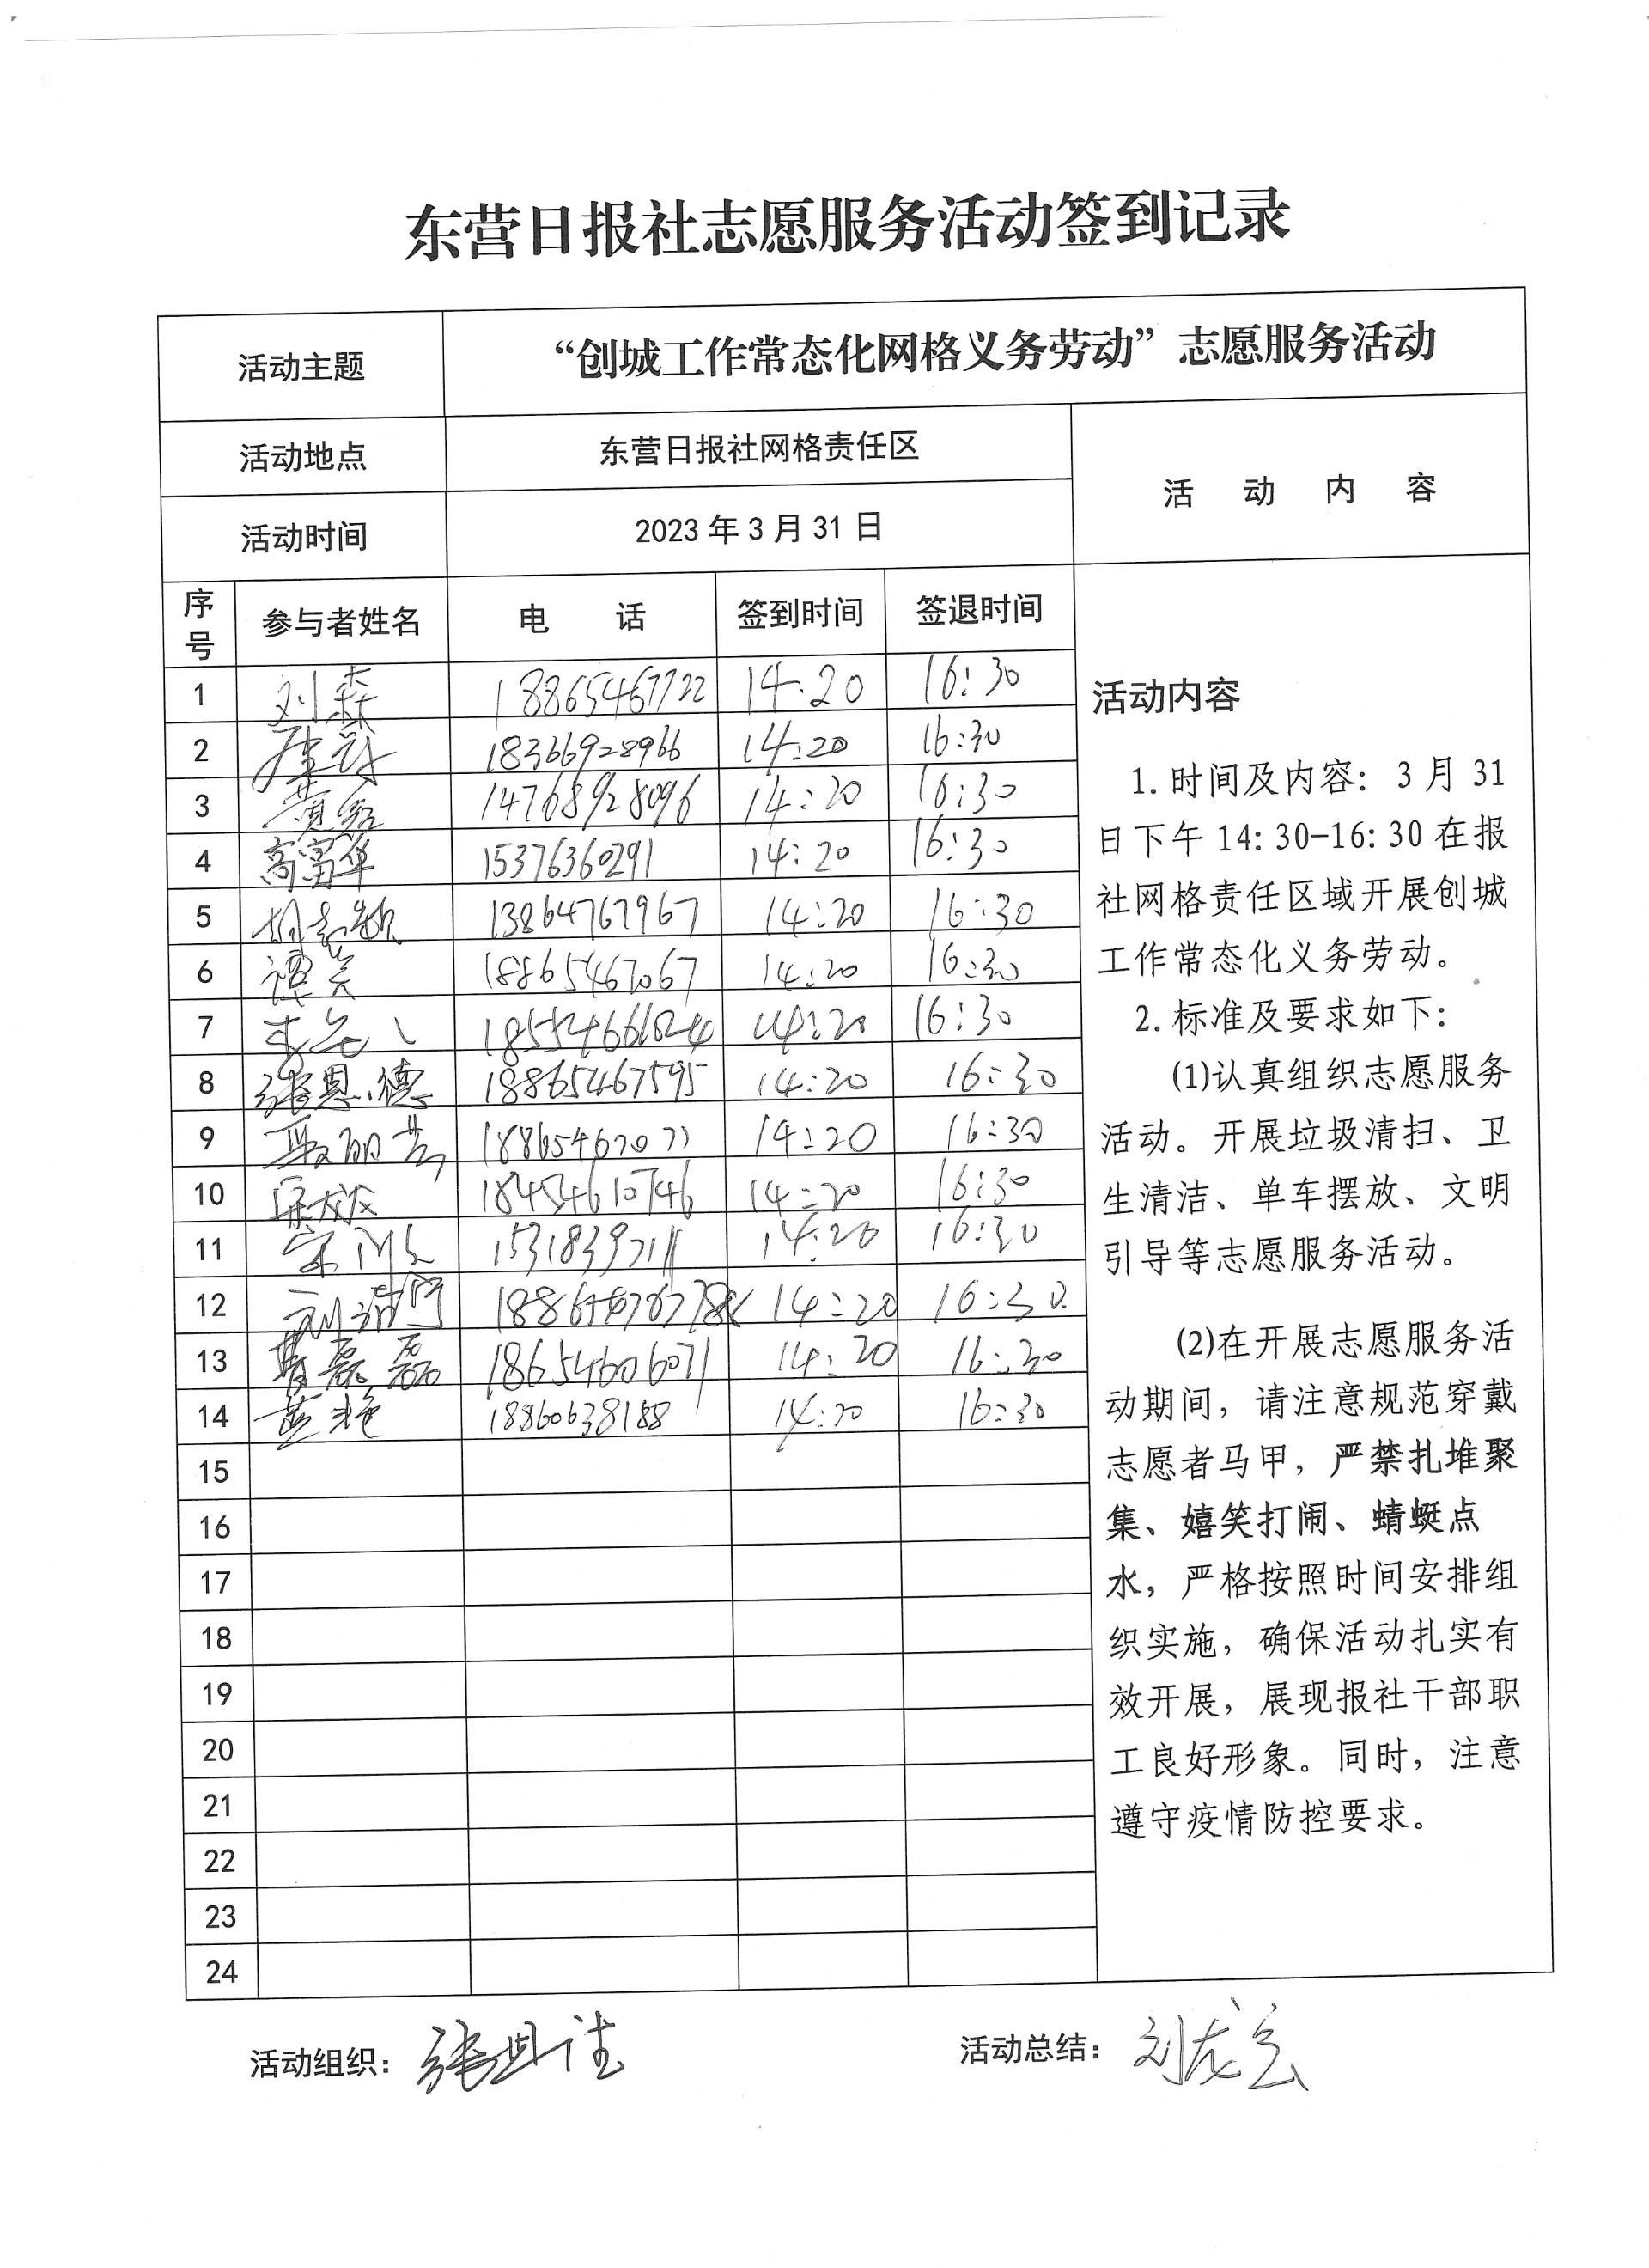 东营日报社志愿服务活动签到记录
活动主题 “创城工作常态化网格义务劳动”志愿服务活动
活动地点 东营日报社网格责任区 活动内容
活动时间 2023年3月31日
序号 参与者姓名 电话 签到时间 签退时间
1 刘森 18865467722 14:20 16:30
2 18366928966 14:20 16:30
3 14768928096 14:20 16:30
4 高富华 15376360291 14:20 16:30
5 13864767967 14:20 16:30
6 18865467067 14:20 16:30
7 14:20 16:30
8 张恩德 18865467595 14:20 16:30
9 14:20 16:30
10 18454610746 14:20 16:30
11 14:20 16:30
12 14:20 16:30
13 曹磊磊 18654606071 14:20 16:30
14 黄艳 14:20 16:30
15
16
17
18
19
20
21
22
23
24
活动内容
1.时间及内容：3月31
日下午14:30-16:30在报
社网格责任区域开展创城
工作常态化义务劳动。
2.标准及要求如下：
(1)认真组织志愿服务
活动。开展垃圾清扫、卫
生清洁、单车摆放、文明
引导等志愿服务活动。
(2)在开展志愿服务活
动期间，请注意规范穿戴
志愿者马甲，严禁扎堆聚
集、嬉笑打闹、蜻蜓点
水，严格按照时间安排组
织实施，确保活动扎实有
效开展，展现报社干部职
工良好形象。同时，注意
遵守疫情防控要求。
活动组织： 活动总结：